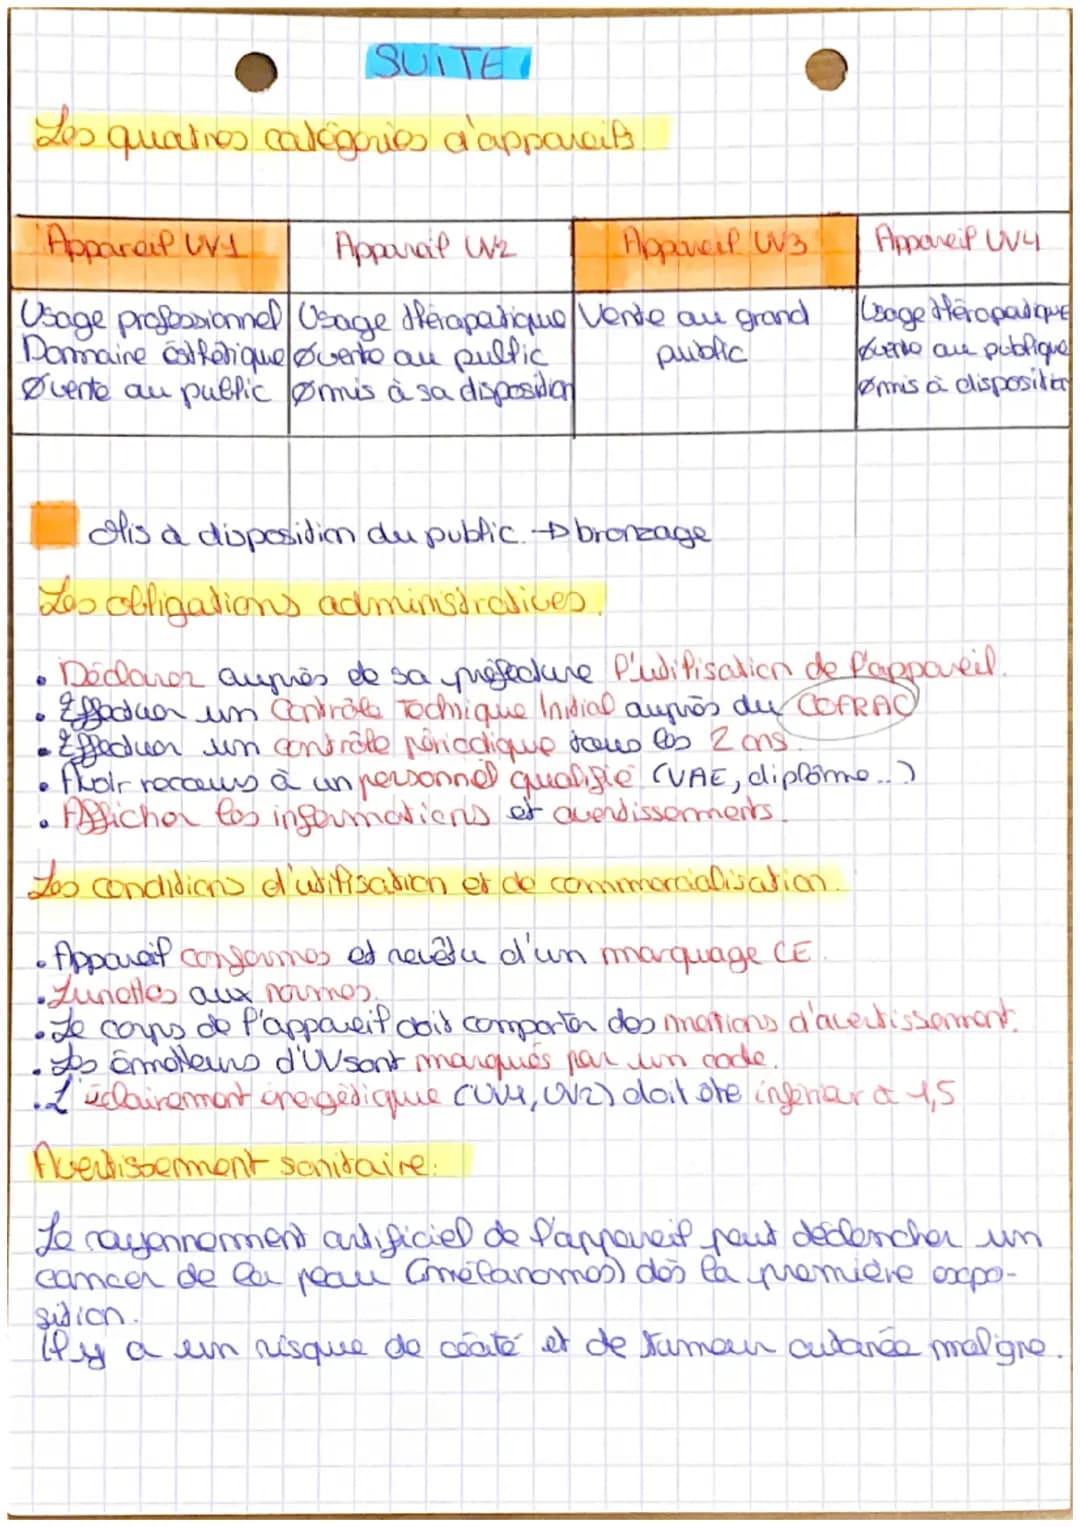 SUITE
Les quatres catégories d'appareils.
Appareil UV1
Appareil UV2
Appareil UV3
Appareil UV4
Usage professionnel
Domaine esthétique
Ø vente au public
Usage thérapeutique
Ø vente au public
Ø mis à sa disposition
Vente au grand
public
Usage thérapeutique
Ø vente au publique
Ø mis à disposition
Mis à disposition du public. → bronzage
Les obligations administratives.
• Déclarer auprès de sa préfecture l'utilisation de l'appareil.
• Effectuer un Contrôle Technique Initial auprès du COFRAC
• Effectuer un contrôle périodique tous les 2 ans.
• Avoir recours à un personnel qualifié (VAE, diplôme...)
• Afficher les informations et avertissements.
Les conditions d'utilisation et de commercialisation.
• Appareil conformes et revêtu d'un marquage CE.
• Lunettes aux normes.
• Le corps de l'appareil doit comporter des mentions d'avertissement.
• Les émetteurs d'UV sont marqués par un code.
• L'éclairement énergétique (UV1, UV2) doit être inférieur à 1,5
Avertissement sanitaire:
Le rayonnement artificiel de l'appareil peut déclencher un
cancer de la peau (mélanomes) dès la première expo-
sition.
Il y a un risque de cécité et de tumeur cutanée maligne.